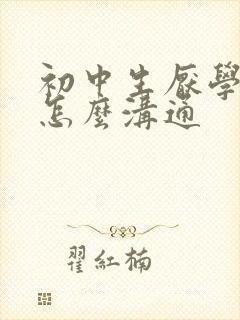 初中生厭學
怎麼溝通
翟紅楠